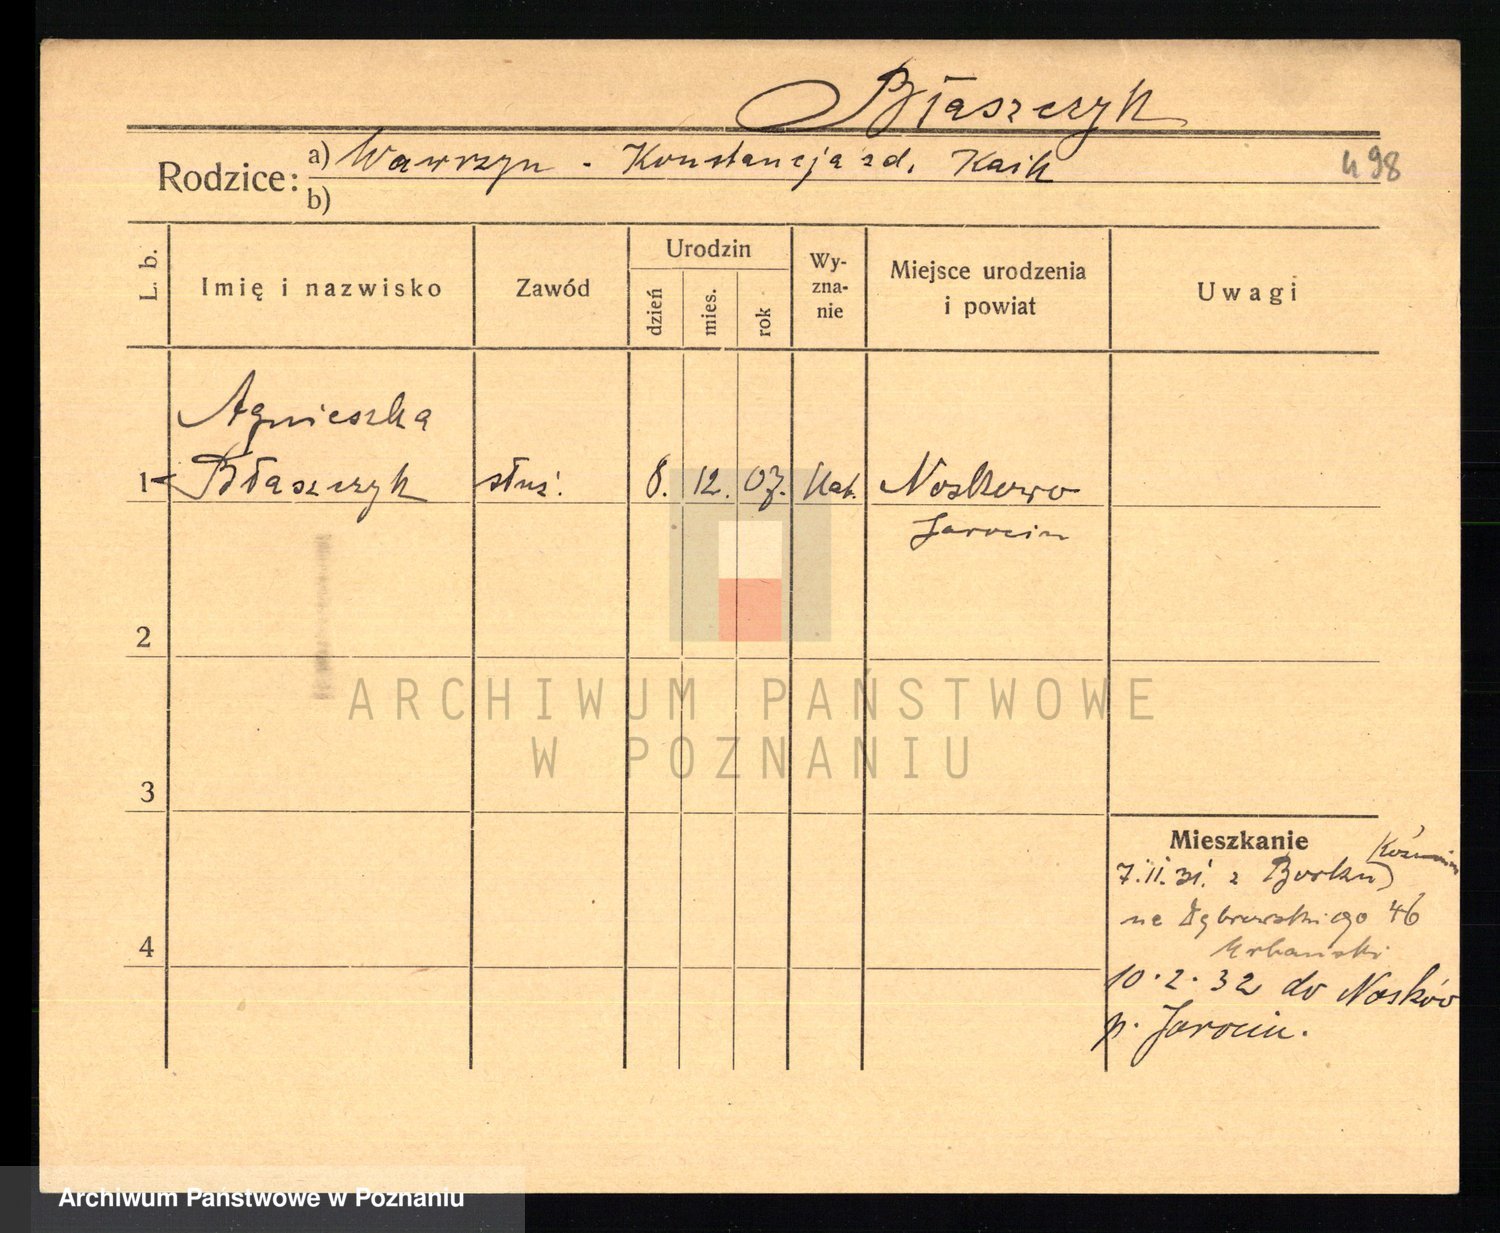 Błaszczyk
Rodzice: a) Wawrzyn - Konstancja zd. Kaik
b)
498
L. b.
Imię i nazwisko
Zawód
Urodzin
dzień
mies.
rok
Wy-
zna-
nie
Miejsce urodzenia
i powiat
Uwagi
Agnieszka
1 Błaszczyk służ. 8. 12. 07. Kat. Noskowo
Jarocin
2
3
4
ARCHIWUM PAŃSTWOWE
W POZNANIU
Mieszkanie
7.II.31. z Borku (Koźmin)
na Dąbrowskiego 46
Urbański
10.2.32 do Nosków
p. Jarocin.
Archiwum Państwowe w Poznaniu